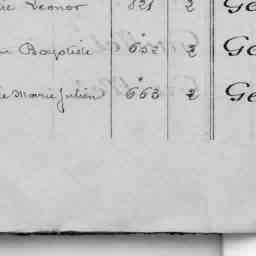 Leonor 821 2 Ge
Baptiste 652 2 Ge
Marie Julien 663 2 Ge